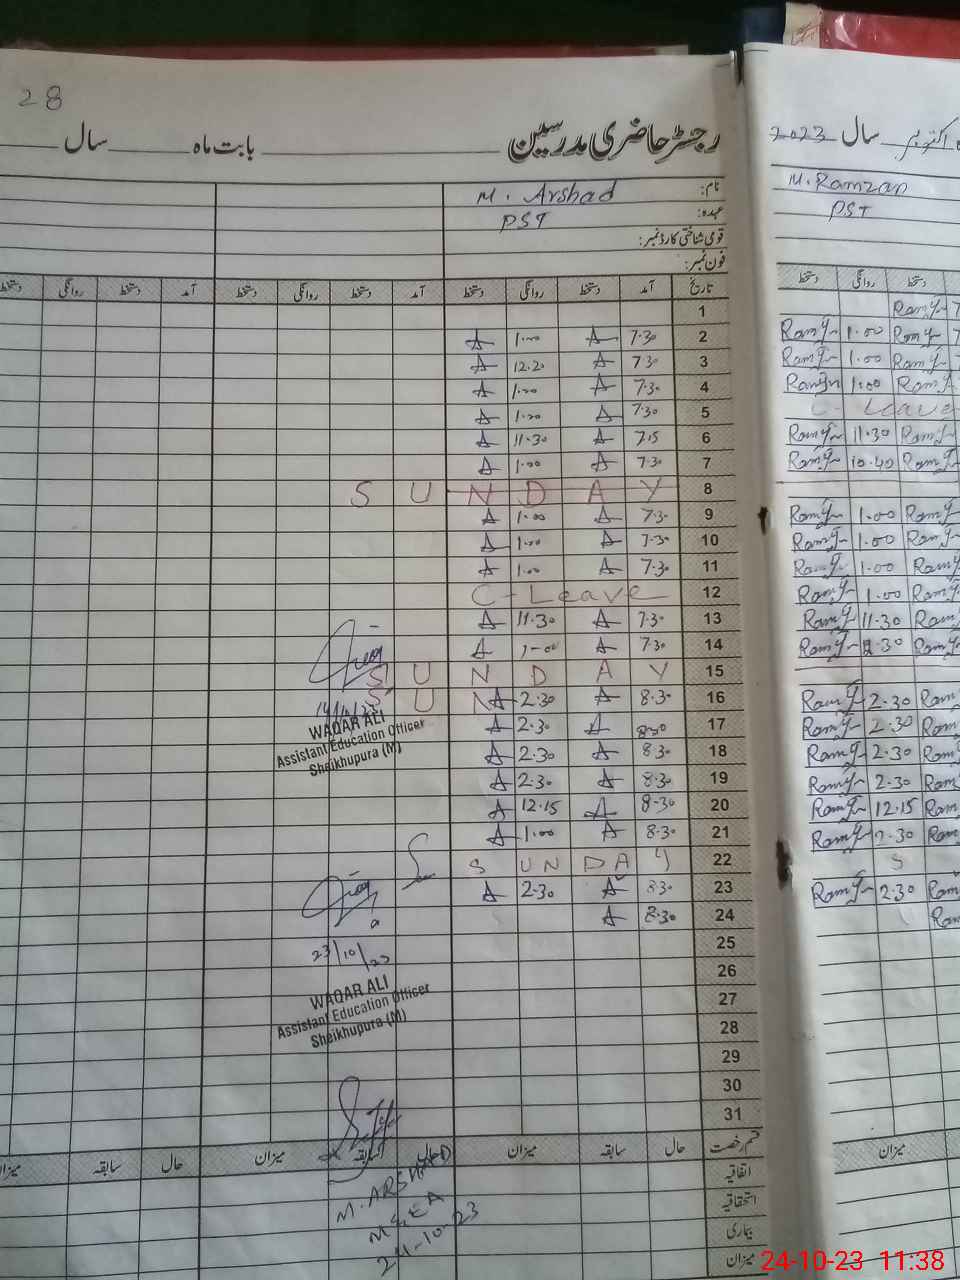 28
رجسٹر حاضری مدرسین بابت ماہ سال
نام: M. Arshad
عہدہ: PST
قومی شناختی کارڈ نمبر:
فون نمبر:
تاریخ آمد دستخط روانگی دستخط آمد دستخط روانگی دستخط آمد دستخط روانگی دستخط
1
2 7.30 A 1.00 A
3 7.30 A 12.20 A
4 7.30 A 1.00 A
5 7.30 A 1.00 A
6 7.15 A 11.30 A
7 7.30 A 1.00 A
8 SUNDAY
9 7.30 A 1.00 A
10 7.30 A 1.00 A
11 7.30 A 1.00 A
12 C-Leave
13 7.30 A 11.30 A
14 7.30 A 1.00 A
15 SUNDAY
16 8.30 A 2.30 A SUN
17 8.30 A 2.30 A
18 8.30 A 2.30 A
19 8.30 A 2.30 A
20 8.30 A 12.15 A
21 8.30 A 1.00 A
22 SUNDAY
23 8.30 A 2.30 A
24 8.30 A
25
26
27
28
29
30
31
WAQAR ALI
Assistant Education Officer
Sheikhupura (M)
23/10/23
WAQAR ALI
Assistant Education Officer
Sheikhupura (M)
قسم رخصت حال سابقہ میزان حال سابقہ میزان حال سابقہ میزان
اتفاقیہ
استحقاقیہ
بیماری
میزان
M. ARSHAD
MEA
24-10-23
اکتوبر سال 2023
M. Ramzan
PST
دستخط روانگی دستخط
Ramz 7
Ramz 1.00 Ramz 7
Ramz 1.00 Ramz 7
Ramzn 1.00 Ramz
C- Leave
Ramz 11.30 Ramz
Ramz 10.40 Ramz
Ramz 1.00 Ramz
Ramz 1.00 Ramz
Ramz 1.00 Ramz
Ramz 1.00 Ramz
Ramz 11.30 Ramz
Ramz 2.30 Ramz
Ramz 2.30 Ram
Ramz 2.30 Ram
Ramz 2.30 Ram
Ramz 2.30 Ram
Ramz 12.15 Ram
Ramz 2.30 Ram
S
Ramz 2.30 Ram
Ram
میزان
24-10-23 11:38